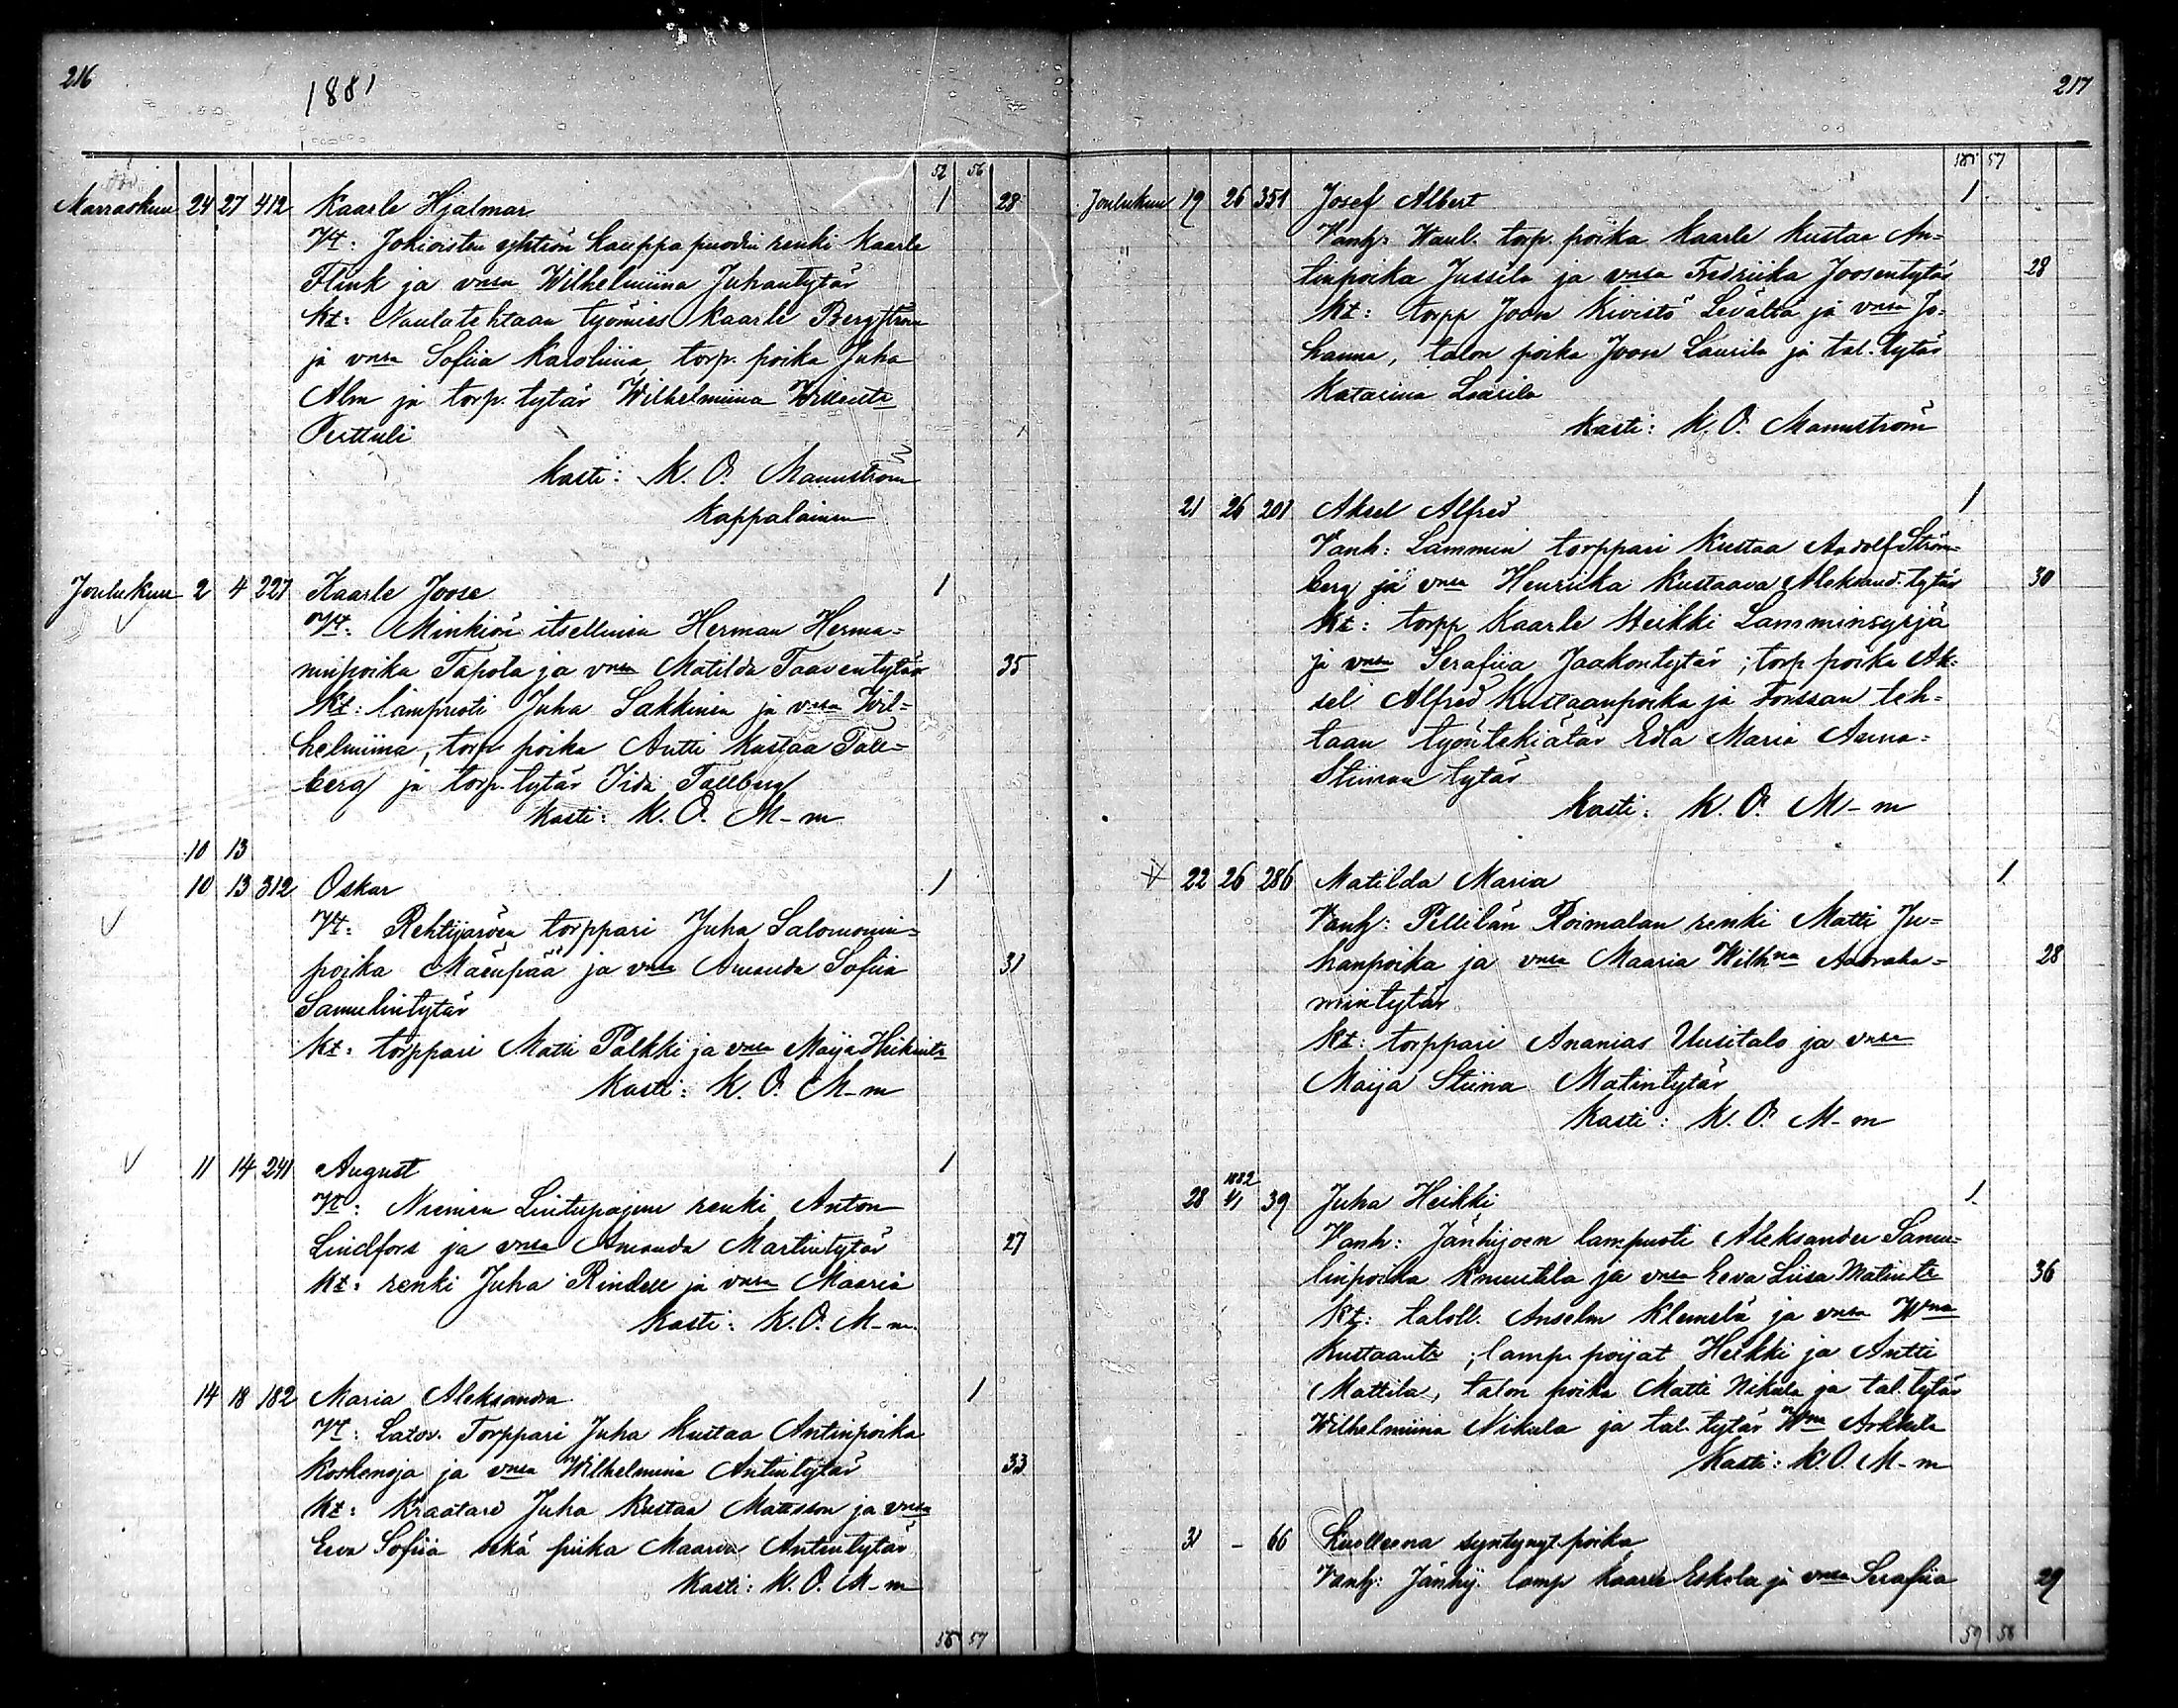 216
1881
52 56
Marraskuu 24 27 412 Kaarle Hjalmar 1 28
Vt: Jokioisten yhtiön kauppapuodin renki Kaarle
Flink ja vnsa Wilhelmiina Juhantytär
Kt: Naulatehtaan työmies Kaarle Bergström
ja vnsa Sofiia Karoliina, torp. poika Juha
Alm ja torp. tytär Wilhelmiina
Perttuli
Kasti: K. O. Mannström
Kappalainen
Joulukuu 2 4 227 Kaarle Joose 1
Vt: Minkiön itsellinen Herman Herma=
ninpoika Tapola ja vnsa Matilda Taaventytär 35
Kt: lampuoti Juha Sakkinen ja vnsa Wil=
helmiina, torp. poika Antti Kustaa Tall=
berg ja torp. tytär Iida Tallberg
Kasti: K. O. M-m
10 13
10 13 312 Oskar 1
Vt: Rehtijärven torppari Juha Salomonin=
poika Mäenpää ja vnsa Amanda Sofiia 31
Samulintytär
Kt: torppari Matti Palkki ja vnsa Maija Heikintr
Kasti: K. O. M-m
11 14 241 August 1
Vt: Niemen Lintupajun renki Anton
Lindfors ja vnsa Amanda Martintytär 27
Kt: renki Juha Rindell ja vnsa Maaria
Kasti: K. O. M-m.
14 18 182 Maria Aleksandra 1
Vt: Latov. Torppari Juha Kustaa Antinpoika
Koskenoja ja vnsa Wilhelmina Antintytär 33
Kt: Kraatari Juha Kustaa Mattsson ja vnsa
Eeva Sofiia sekä piika Maaria Antintytär
Kasti: K. O. M-m
217
57
Joulukuu 19 26 351 Josef Albert 1
Vanh: Waul. torp. poika Kaarle Kustaa An=
tinpoika Jussila ja vnsa Fredriika Joosentytär 28
Kt: torpp Joon Kivistö Levältä ja vnsa Jo=
hanna, talon poika Joose Laurila ja tal. tytär
Katarina Laurila
Kasti: K. O. Mannström
21 26 201 Aksel Alfred 1
Vanh: Lammin torppari Kustaa Aadolf Ström=
berg ja vnsa Henriika Kustaava Aleksand. tytär 30
Kt: torpp Kaarle Heikki Lamminsyrjä
ja vnsa Serafiia Jaakontytär; torp poika Ak=
sel Alfred Kustaanpoika ja Forssan teh=
taan työntekiätär Edla Maria Anna=
Stiinan tytär
Kasti: K. O. M-m
22 26 286 Matilda Maria 1
Vanh: Pellilän Roimalan renki Matti Ju=
hanpoika ja vnsa Maaria Wilhna Aabraha= 28
mintytär
Kt: torppari Ananias Uusitalo ja vnsa
Maija Stiina Matintytär
Kasti: K. O. M-m
1882
28 4/1 39 Juha Heikki 1
Vanh: Jänhijoen lampuoti Aleksander Samu=
linpoika Knuutila ja vnsa Eeva Liisa Matintr 36
Kt: taloll. Anselm Klemelä ja vnsa Wna
Kustaantr; lamp. pojat Heikki ja Antti
Mattila, talon poika Matti Nikula ja tal. tytär
Wilhelmiina Nikula ja tal. tytär Wna Arkkila
Kasti: K. O. M-m
31 - 66 Kuolleena syntynyt poika
Vanh: Jänhij. lamp Kaarle Eskola ja vnsa Serafiia 29